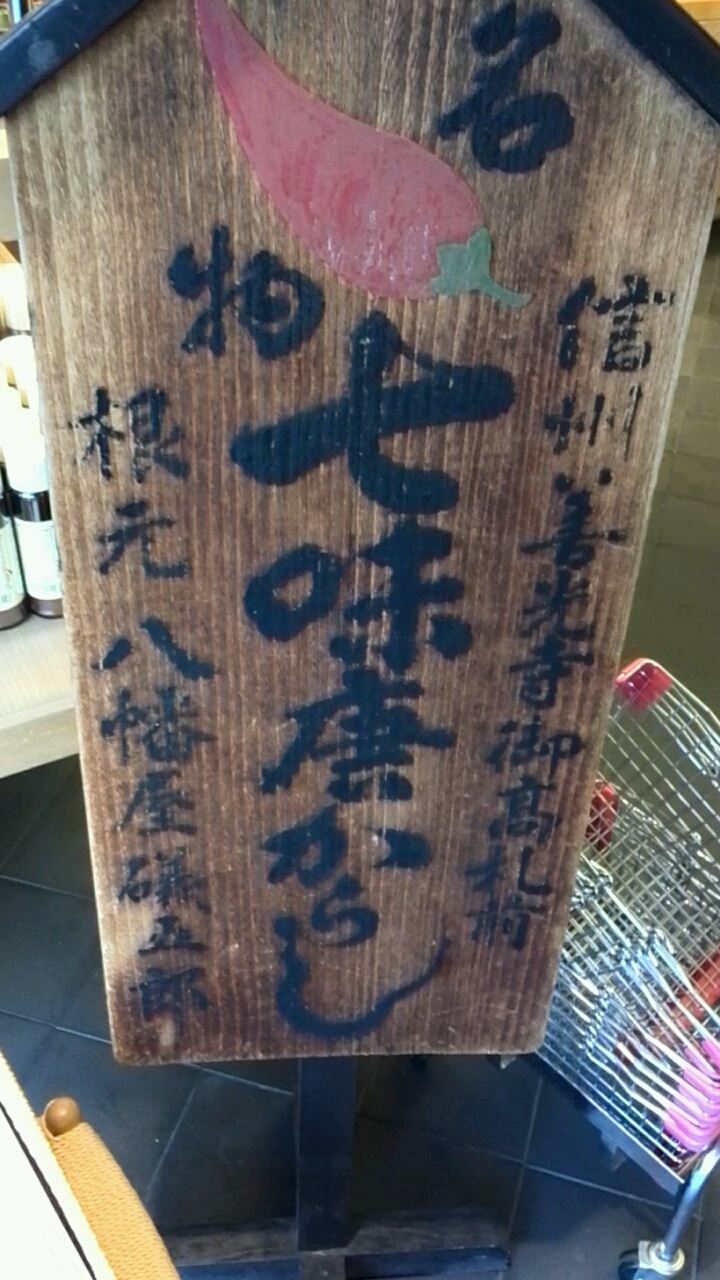 名物
信州善光寺御高札前
七味唐からし
根元 八幡屋礒五郎